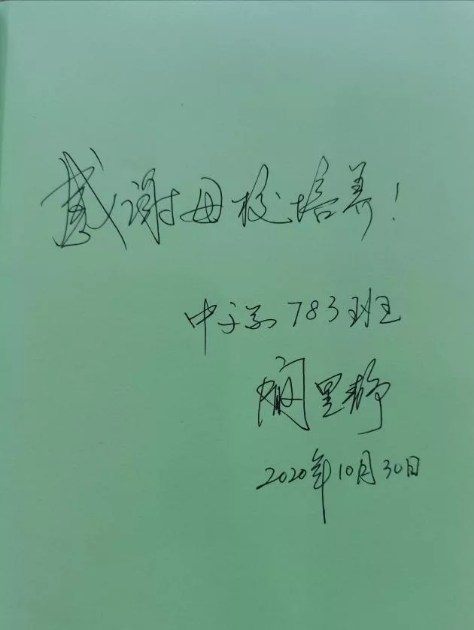 感谢母校培养！
中文系783班
阚里静
2020年10月30日